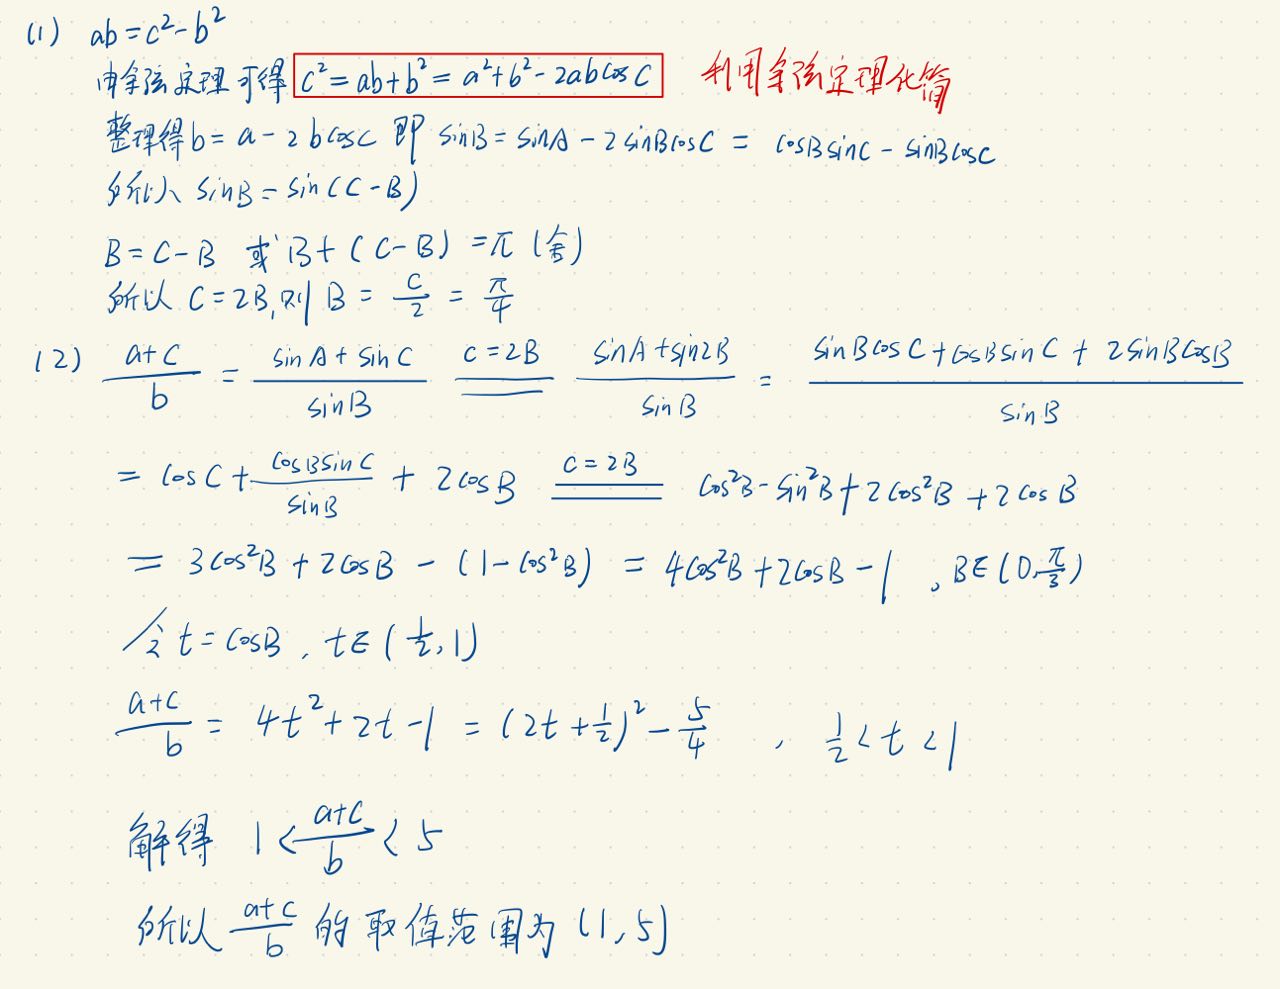 (1) ab=c²-b²
由余弦定理可得 c²=ab+b²=a²+b²-2abcosC 利用余弦定理化简
整理得b=a-2bcosC 即 sinB=sinA-2sinBcosC = cosBsinC-sinBcosC
所以 sinB=sin(C-B)
B=C-B 或 B+(C-B)=π (舍)
所以 C=2B,则 B=C/2=π/4
(2) (a+c)/b = (sinA+sinC)/sinB = C=2B (sinA+sin2B)/sinB = (sinBcosC+cosBsinC+2sinBcosB)/sinB
= cosC+cosBsinC/sinB+2cosB = C=2B cos²B-sin²B+2cos²B+2cosB
= 3cos²B+2cosB-(1-cos²B) = 4cos²B+2cosB-1 , B∈(0,π/3)
令 t=cosB , t∈(1/2,1)
(a+c)/b = 4t²+2t-1 = (2t+1/2)²-5/4 , 1/2<t<1
解得 1<(a+c)/b<5
所以 (a+c)/b 的取值范围为 (1,5)